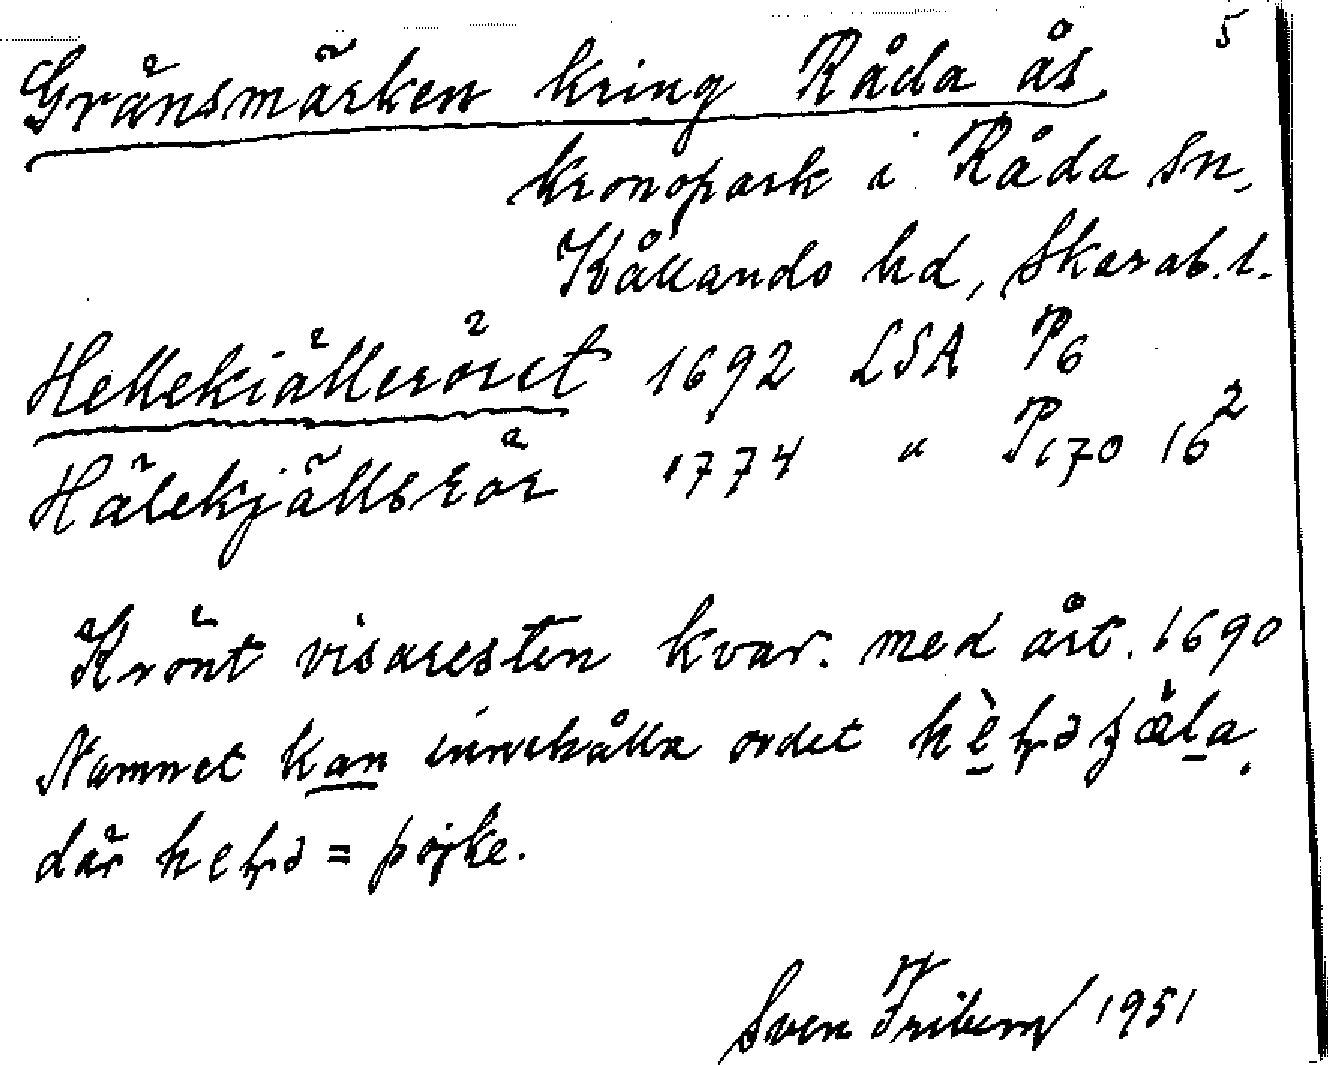 5
Gränsmärken kring Råda ås,
kronopark i Råda sn,
Kållands hd, Skarab. l.
Hellekiälleröret 1692 LSA P6
Hälekjällsrör 1774 " P170 16²
Krönt visaresten kvar. med årt. 1690
Namnet kan innehålla ordet
där = pojke.
Sven Friberg 1951